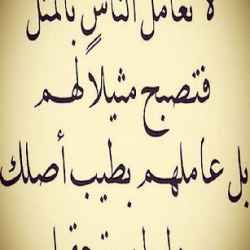 لا تعامل الناس بالمثل
فتصبح مثيلاً لهم
بل عاملهم بطيب أصلك